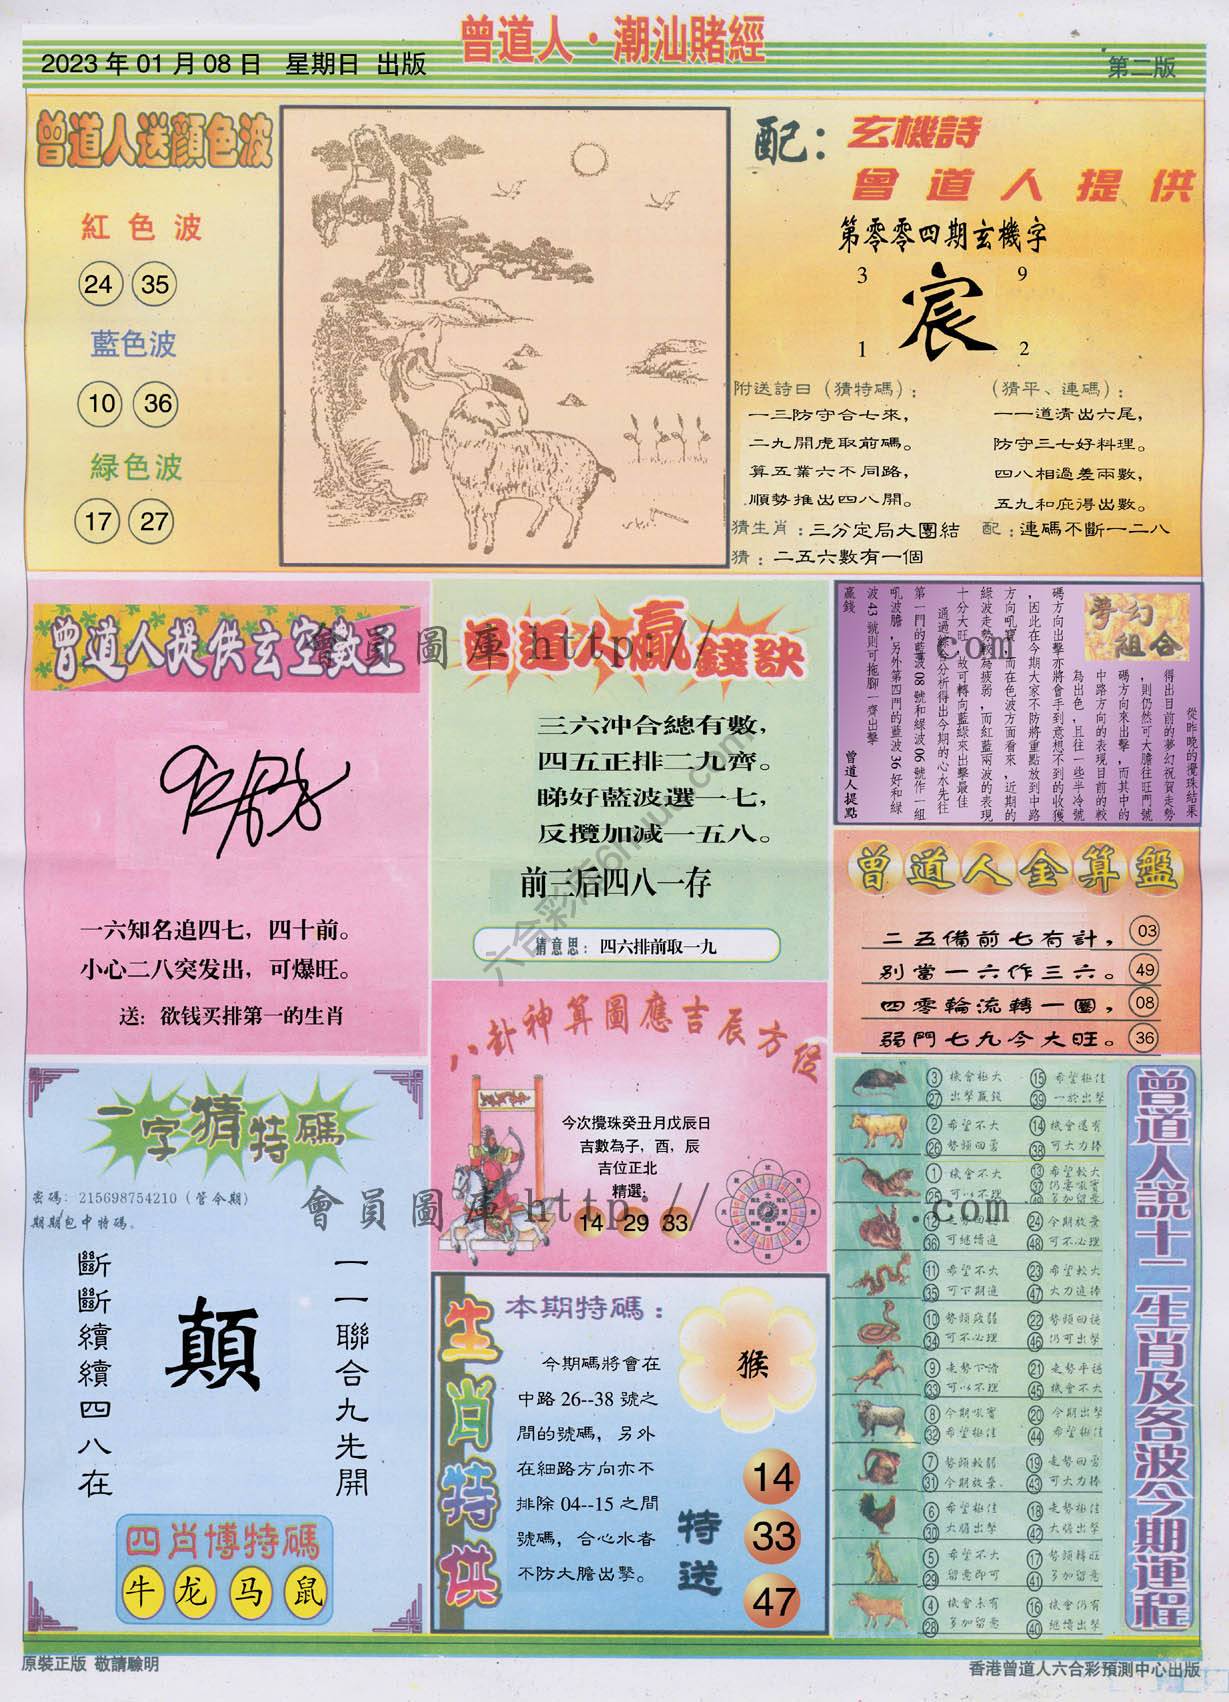 曾道人·潮汕賭經
2023年01月08日 星期日 出版
第二版
曾道人送顏色波
紅色波
24 35
藍色波
10 36
緑色波
17 27
配：玄機詩
曾道人提供
第零零四期玄機字
3 9
宸
1 2
附送詩曰（猜特碼）：
一三防守合七來，
二九開虎取前碼。
算五業六不同路，
順勢推出四八開。
（猜平、連碼）：
一一道清出六尾，
防守三七好料理。
四八相過差兩數，
五九和庇得出數。
猜生肖：三分定局大團結
配：連碼不斷一二八
猜：二五六數有一個
曾道人提供玄空數王
一六知名追四七，四十前。
小心二八突发出，可爆旺。
送：欲钱买排第一的生肖
曾道人贏錢訣
三六冲合總有數，
四五正排二九齊。
睇好藍波選一七，
反攬加減一五八。
前三后四八一存
猜意思：四六排前取一九
夢幻組合
從昨晚的攪珠結果
得出目前的夢幻祝賀走勢
，則仍然可大膽往旺門號
碼方向來出擊，而其中的
中路方向的表現目前的較
為出色，且往一些半冷號
碼方向出擊亦將會手到意想不到的收獲
，因此在今期大家不防將重點放到中路
方向吼寶，而在色波方面看來，近期的
緑波走勢較為疲弱，而紅藍兩波的表現
十分大旺，故可轉向藍緑來出擊最佳
通過綜合分析得出今期的心水先往
第一門的藍波08號和緑波06號作一組
吼波膽，另外第四門的藍波36好和緑
波43號則可拖腳一齊出擊
曾道人提點
贏錢
曾道人金算盤
二五備前七有計， 03
別當一六作三六。 49
四零輪流轉一圈， 08
弱門七九今大旺。 36
一字猜特碼
密碼：215698754210（管今期）
期期包中特碼。
斷斷續續四八在
顛
一一聯合九先開
四肖博特碼
牛 龙 马 鼠
八卦神算圖應吉辰方位
今次攪珠癸丑月戊辰日
吉數為子，酉，辰
吉位正北
精選：
14 29 33
生肖特供
本期特碼：
今期碼將會在
中路26--38號之
間的號碼，另外
在細路方向亦不
排除04--15之間
號碼，合心水者
不防大膽出擊。
猴
特送
14
33
47
曾道人説十二生肖及各波今期運程
3 機會極大 15 希望極佳
27 出擊贏錢 39 一於出擊
2 希望不大 14 機會還有
26 勢頭回勇 38 可大力捧
1 機會不大 13 希望較大
25 可以不理 37 仍要吼實
49 多加留意
12 走勢回 24 今期放棄
36 可繼續進 48 可不必理
11 希望不大 23 希望較大
35 可下期進 47 大力進捧
10 勢頭段弱 22 勢頭回穩
34 可不必理 46 仍可出擊
9 走勢下滑 21 走勢平穩
33 可以不理 45 機會不大
8 今期吼實 20 今期出擊
32 希望極佳 44 希望極佳
7 勢頭較弱 19 走勢回勇
31 今期放棄、 43 可大力捧
6 希望極佳 18 走勢極佳
30 大膽出擊 42 大膽出擊
5 希望不大 17 勢頭轉旺
29 留意即可 41 多加留意
4 機會未有 16 機會仍有
28 多加留意 40 繼續出擊
會員圖庫 http:// .com
會員圖庫 http:// .com
原裝正版 敬請驗明
香港曾道人六合彩預測中心出版